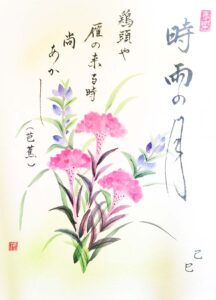 時雨の月
鶏頭や
雁の来る時
尚あかし
(芭蕉)
己巳